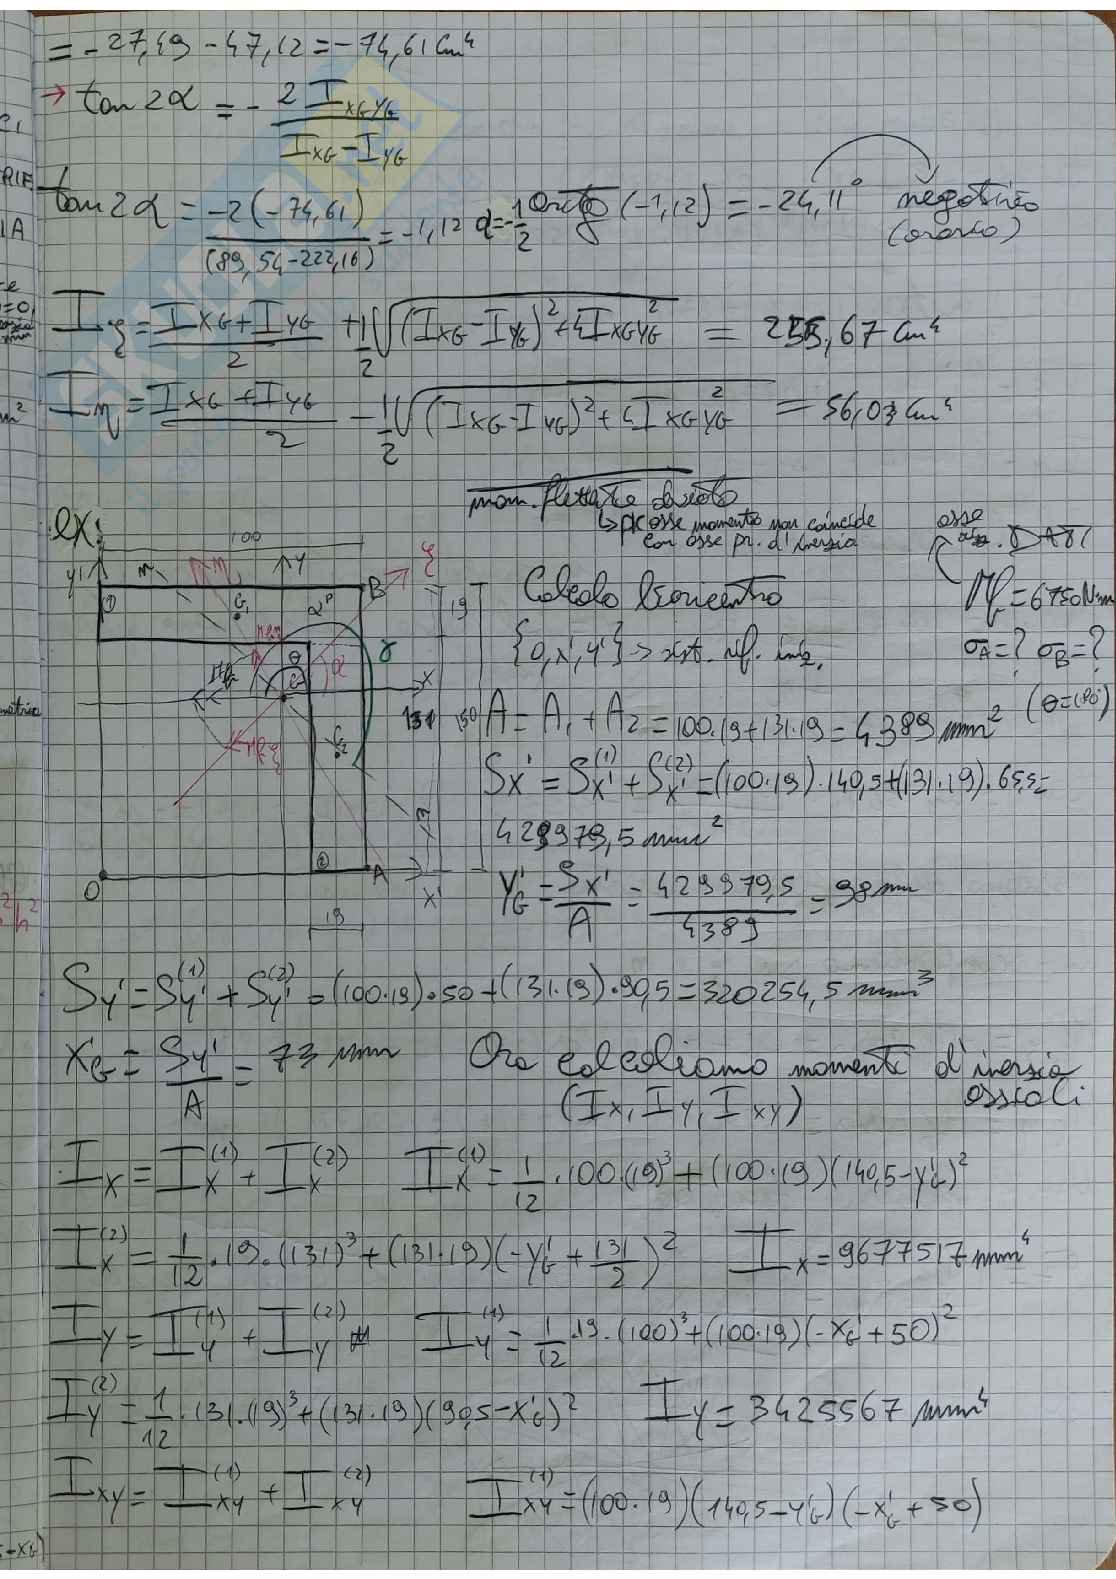 = -27,49 - 47,12 = -74,61 cm⁴
→ tan 2α = - 2 I_XGYG / (I_XG - I_YG)
tan 2α = -2(-74,61) / (89,54-222,16) = -1,12 α = -1/2 arctg (-1,12) = -24,11° negativo
(orario)
I_ξ = (I_XG + I_YG)/2 + 1/2 √((I_XG - I_YG)² + 4I_XGYG²) = 255,67 cm⁴
I_η = (I_XG + I_YG)/2 - 1/2 √((I_XG - I_YG)² + 4 I_XGYG²) = 56,03 cm⁴
mom. flettente deviato
↳ pk asse momento non coincide
con asse pr. d'inerzia
ex:
100
asse
DATI
y' n η y ξ B
① G₁ α^p 19
Calcolo baricentro
Mf = 6750 Nm
{O, x', y'} → sist. rif. iniz.
σA = ? σB = ?
(θ=180°)
Mfη θ γ α
Mf G X
Mfξ G₂
131 150
A = A₁ + A₂ = 100·19+131·19 = 4389 mm²
Sx' = Sx'⁽¹⁾ + Sx'⁽²⁾ = (100·19)·140,5+(131·19)·65,5=
429979,5 mm²
n
② A
O X'
19
Y'G = Sx'/A = 429979,5/4389 = 98 mm
Sy' = Sy'⁽¹⁾ + Sy'⁽²⁾ = (100·19)·50+(131·19)·90,5 = 320254,5 mm³
X'G = Sy'/A = 73 mm Ora calcoliamo momenti d'inerzia
(Ix, Iy, Ixy) assiali
Ix = Ix⁽¹⁾ + Ix⁽²⁾ Ix⁽¹⁾ = 1/12·100·(19)³ + (100·19)(140,5-y'G)²
Ix⁽²⁾ = 1/12·19·(131)³ + (131·19)(-y'G + 131/2)² Ix = 9677517 mm⁴
Iy = Iy⁽¹⁾ + Iy⁽²⁾ Iy⁽¹⁾ = 1/12·19·(100)³+(100·19)(-x'G+50)²
Iy⁽²⁾ = 1/12·131·(19)³+(131·19)(90,5-x'G)² Iy = 3425567 mm⁴
Ixy = Ixy⁽¹⁾ + Ixy⁽²⁾ Ixy⁽¹⁾ = (100·19)(140,5-y'G)(-x'G+50)